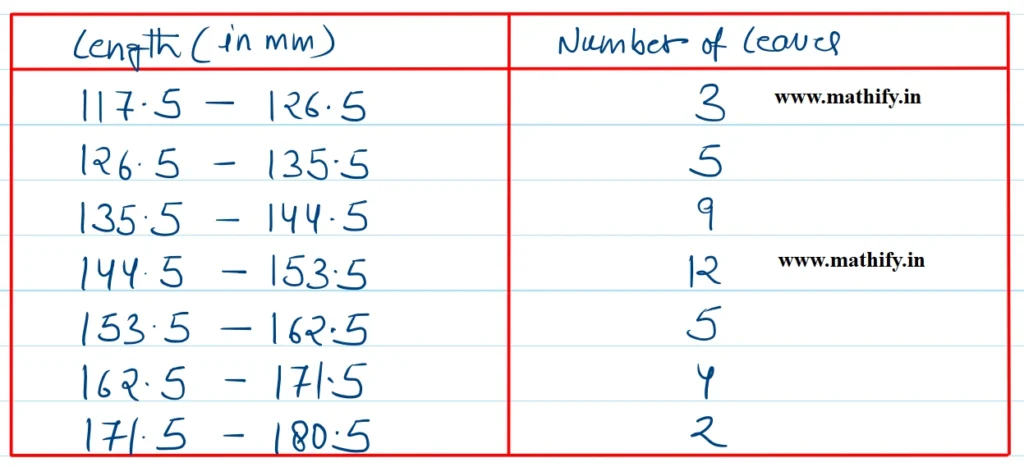 Length (in mm) Number of leaves
117.5 - 126.5 3 www.mathify.in
126.5 - 135.5 5
135.5 - 144.5 9
144.5 - 153.5 12 www.mathify.in
153.5 - 162.5 5
162.5 - 171.5 4
171.5 - 180.5 2